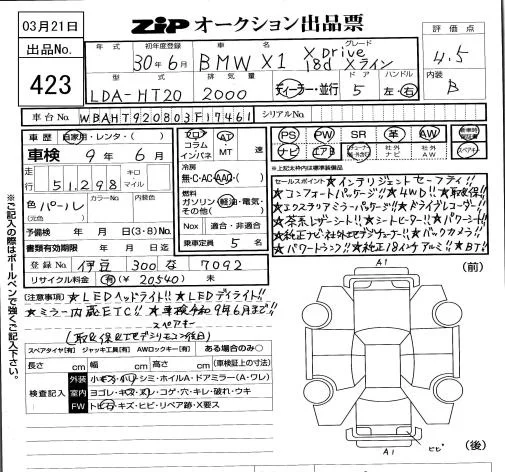 03月21日
ZIP オークション出品票
出品No.
423
年式 初年度登録 車名 グレード
30年6月 BMW X1 xDrive 18d Xライン
型式 排気量 ドア ハンドル
LDA-HT20 2000 ディーラー・並行 5 左・右
評価点
4.5
内装
B
車台No. WBAHT920803F17461 シリアルNo.
車歴 自家用・レンタ・( )
車検 9年 6月
走行 51,298 キロ マイル
色 パール カラーNo. 内装色
(元色)
予備検 年 月 日(3・8)No.
書類有効期限 年 月 日迄
登録No. 伊豆 300 な 7092
リサイクル料金 有(¥ 20540) 未
フロア コラム インパネ
AT・MT 速
冷房
無・C・AC・AAC・( )
燃料
ガソリン・軽油・電気・その他( )
Nox 適合・非適合
乗車定員 5 名
PS PW SR 革 AW
ナビ エアB 社外ナビ 社外AW
※上記太枠内は標準装備品
セールスポイント ★インテリジェントセーフティ!!
★コンフォートパッケージ!!★4WD!!★取保!!
★エクステリアミラーパッケージ!!★ドライブレコーダー!!
★茶系レザーシート!!★シートヒーター!!★パワーシート!!
★純正ナビ社外地デジチューナー!!★バックカメラ!!
★パワートランク!!★純正18インチアルミ!!★BT!!
(注意事項) ★LEDヘッドライト!!★LEDデイライト!!
★ミラー内蔵ETC!!★車検令和9年6月まで!!
スペアキー
スペアタイヤ[有] ジャッキ工具[有] AWロックキー[有] ある場合のみ○
長さ cm 幅 cm 高さ cm (車検証上の寸法)
検査記入
外装 小キズ・小凹・シミ・ホイルA・ドアミラー(A・ワレ)
室内 ヨゴレ・キズ・スレ・コゲ・穴・キレ・破れ・ウキ
FW トビ石・キズ・ヒビ・リペア跡・X要ス
※ご記入の際はボールペンで強くご記入下さい。
A1
(前)
A1
ヒビ
(後)